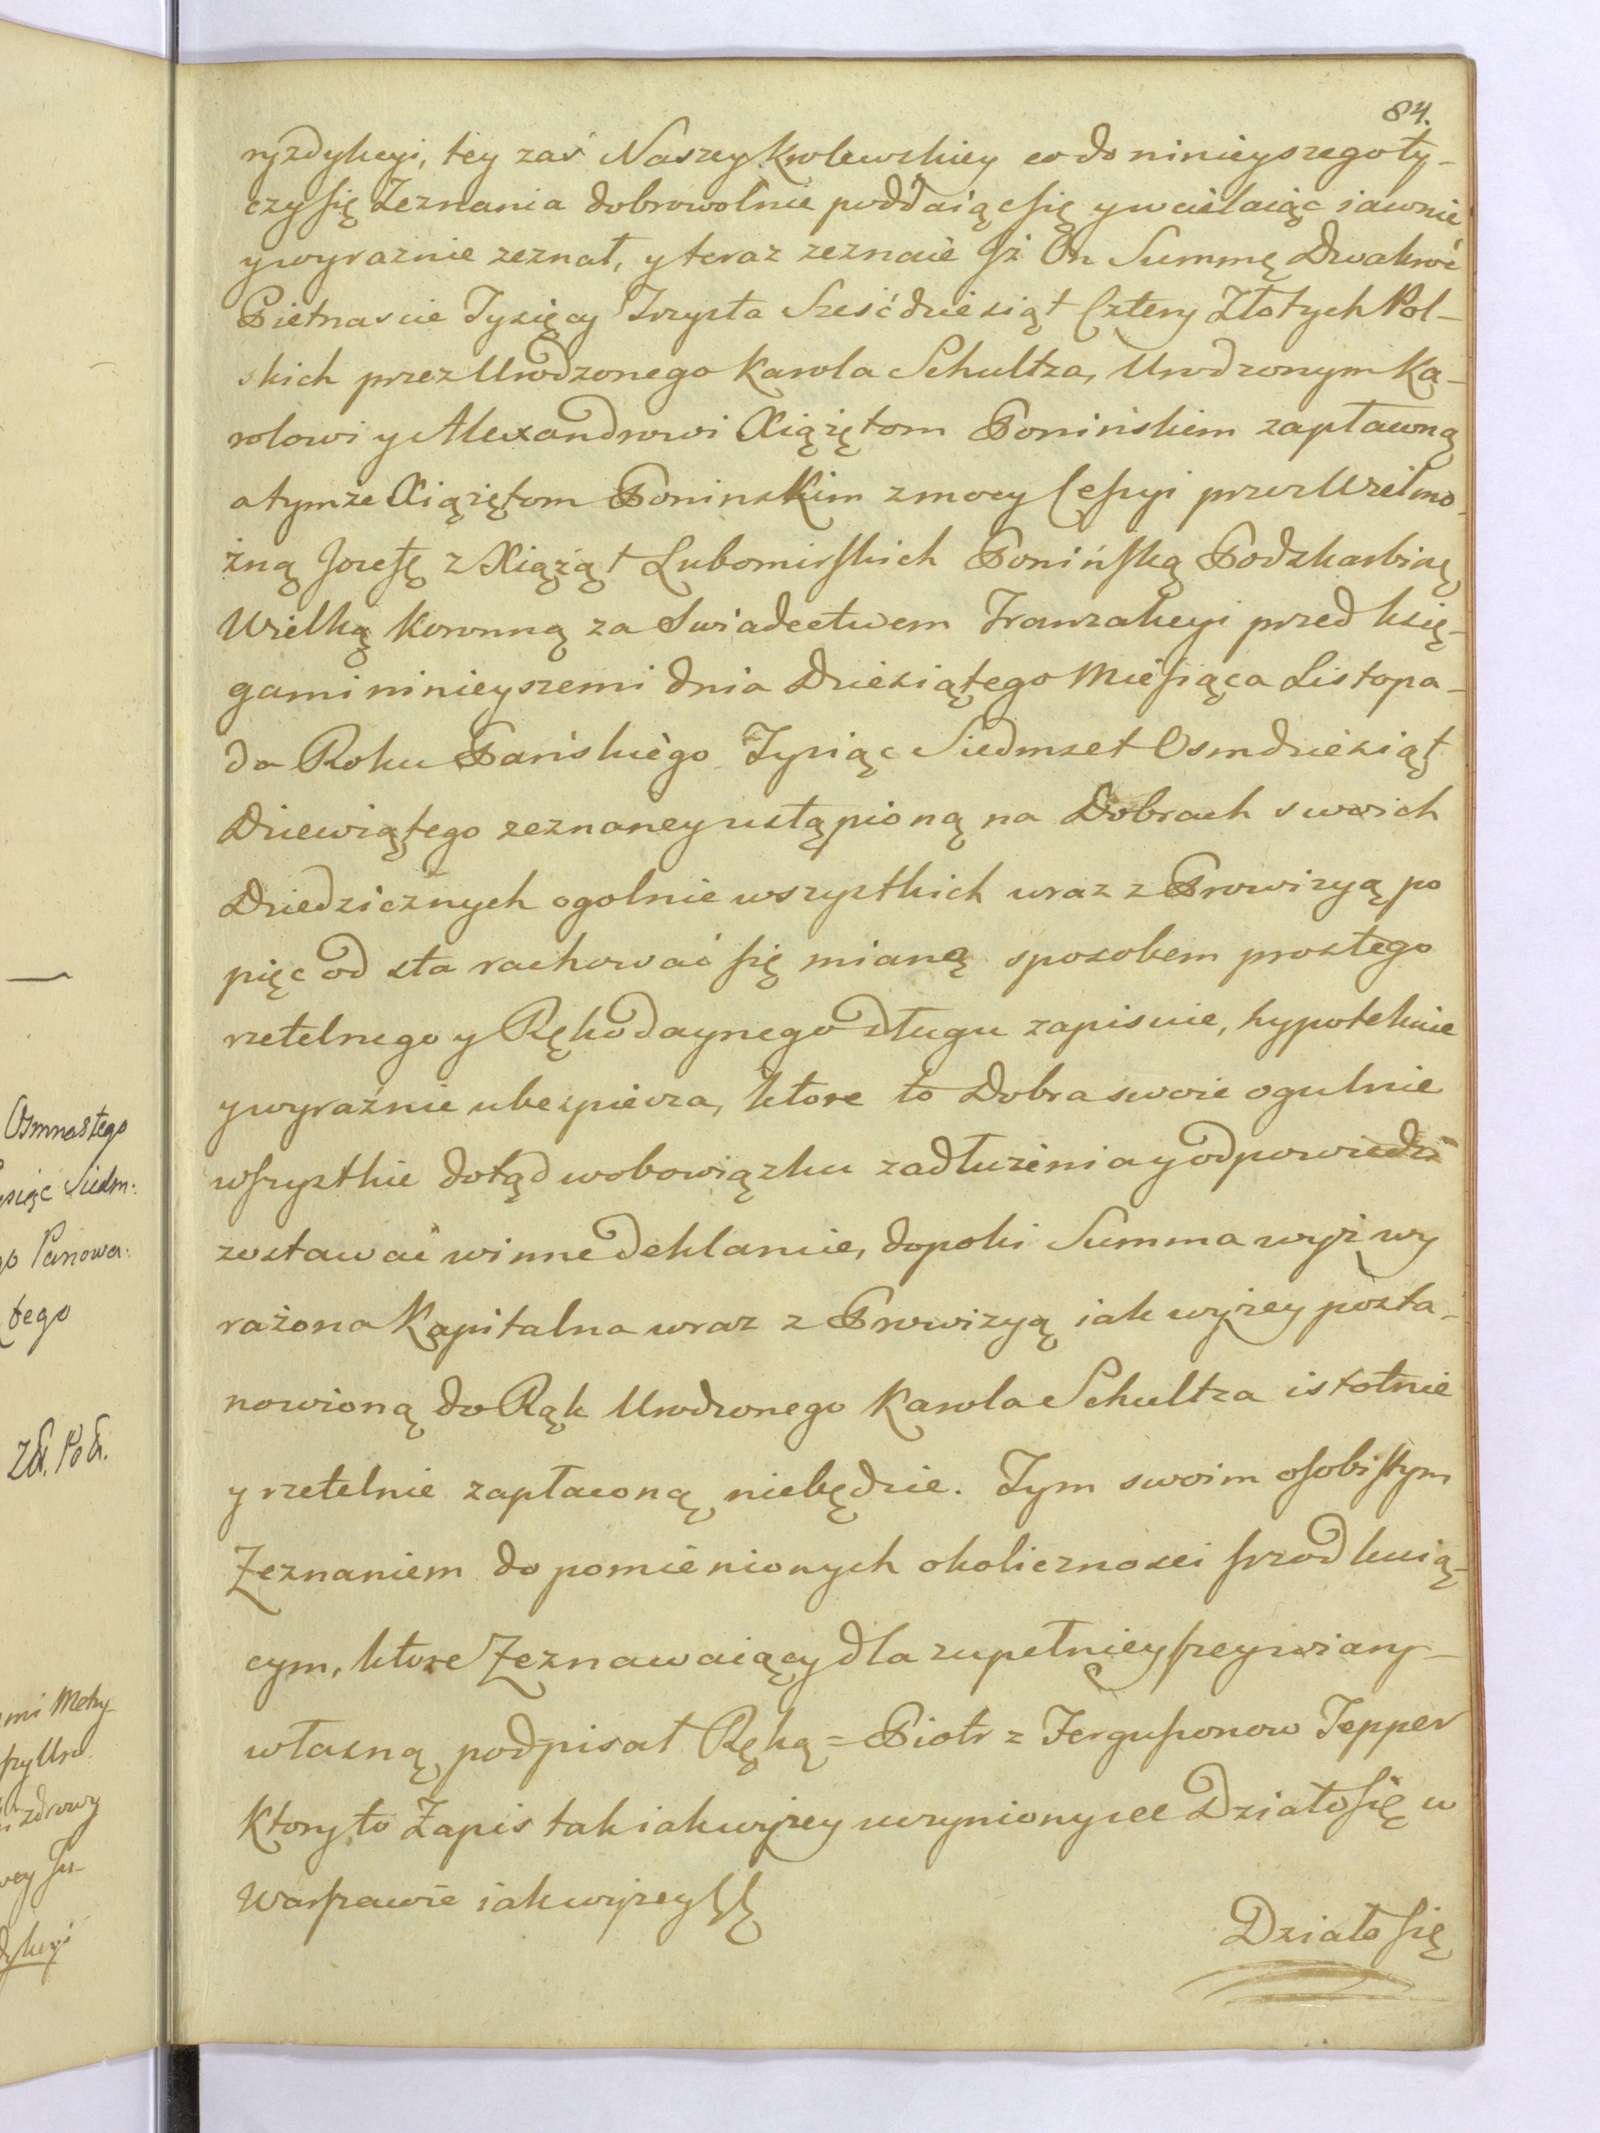 84.
ryzdykcyi, tey zaś Naszey Krolewskiey co do ninieyszego ty-
czy się Zeznania dobrowolnie poddaiąc się y wcielaiąc iawnie
y wyraznie zeznał, y teraz zeznaie Jż On Summę Dwakroć
Pietnascie Tysięcy Trzysta Sześćdziesiąt Cztery Złotych Pol-
skich przez Urodzonego Karola Schultza, Urodzonym Ka-
rolowi y Alexandrowi Xiążętom Ponińskiem zapłaconą
a tymze Xiążętom Poninskim z mocy Cessyi przez Wielmo-
żną Jozefę z Xiążąt Lubomirskich Ponińską Podskarbiną
Wielką Koronną za Swiadectwem Tranzakcyi przed księ-
gami ninieyszemi dnia Dziesiątego Miesiąca Listopa-
da Roku Pańskiego Tysiąc Siedmset Osmdziesiąt
Dziewiątego zeznaney ustąpioną na Dobrach swoich
Dziedzicznych ogolnie wszystkich wraz z Prowizyą po
pięc od sta rachować się mianą sposobem prostego
rzetelnego y Rękodaynego długu zapisuie, hypotekuie
y wyraźnie ubezpiecza, ktore to Dobra swoie ogulnie
wszystkie dotąd w obowiązku zadłużenia y odpowiedzi
zostawać winne deklaruie, dopoki Summa wyż wy
rażona Kapitalna wraz z Prowizyą iak wyżey posta-
nowioną do Rąk Urodzonego Karola Schultza istotnie
y rzetelnie zapłaconą niebędzie. Tym swoim osobistym
Zeznaniem do pomienionych okolicznosci srzodkuią-
cym, ktore Zeznawaiący dla zupełnieyszey wiary
własną podpisał Ręką = Piotr z Fergusonow Tepper
Ktory to Zapis tak iak wyżey uczyniony Działo się w
Warszawie iak wyżey
Działo się
Osmnastego
Siedm:
Panowa:
tego
Zł. Pol.